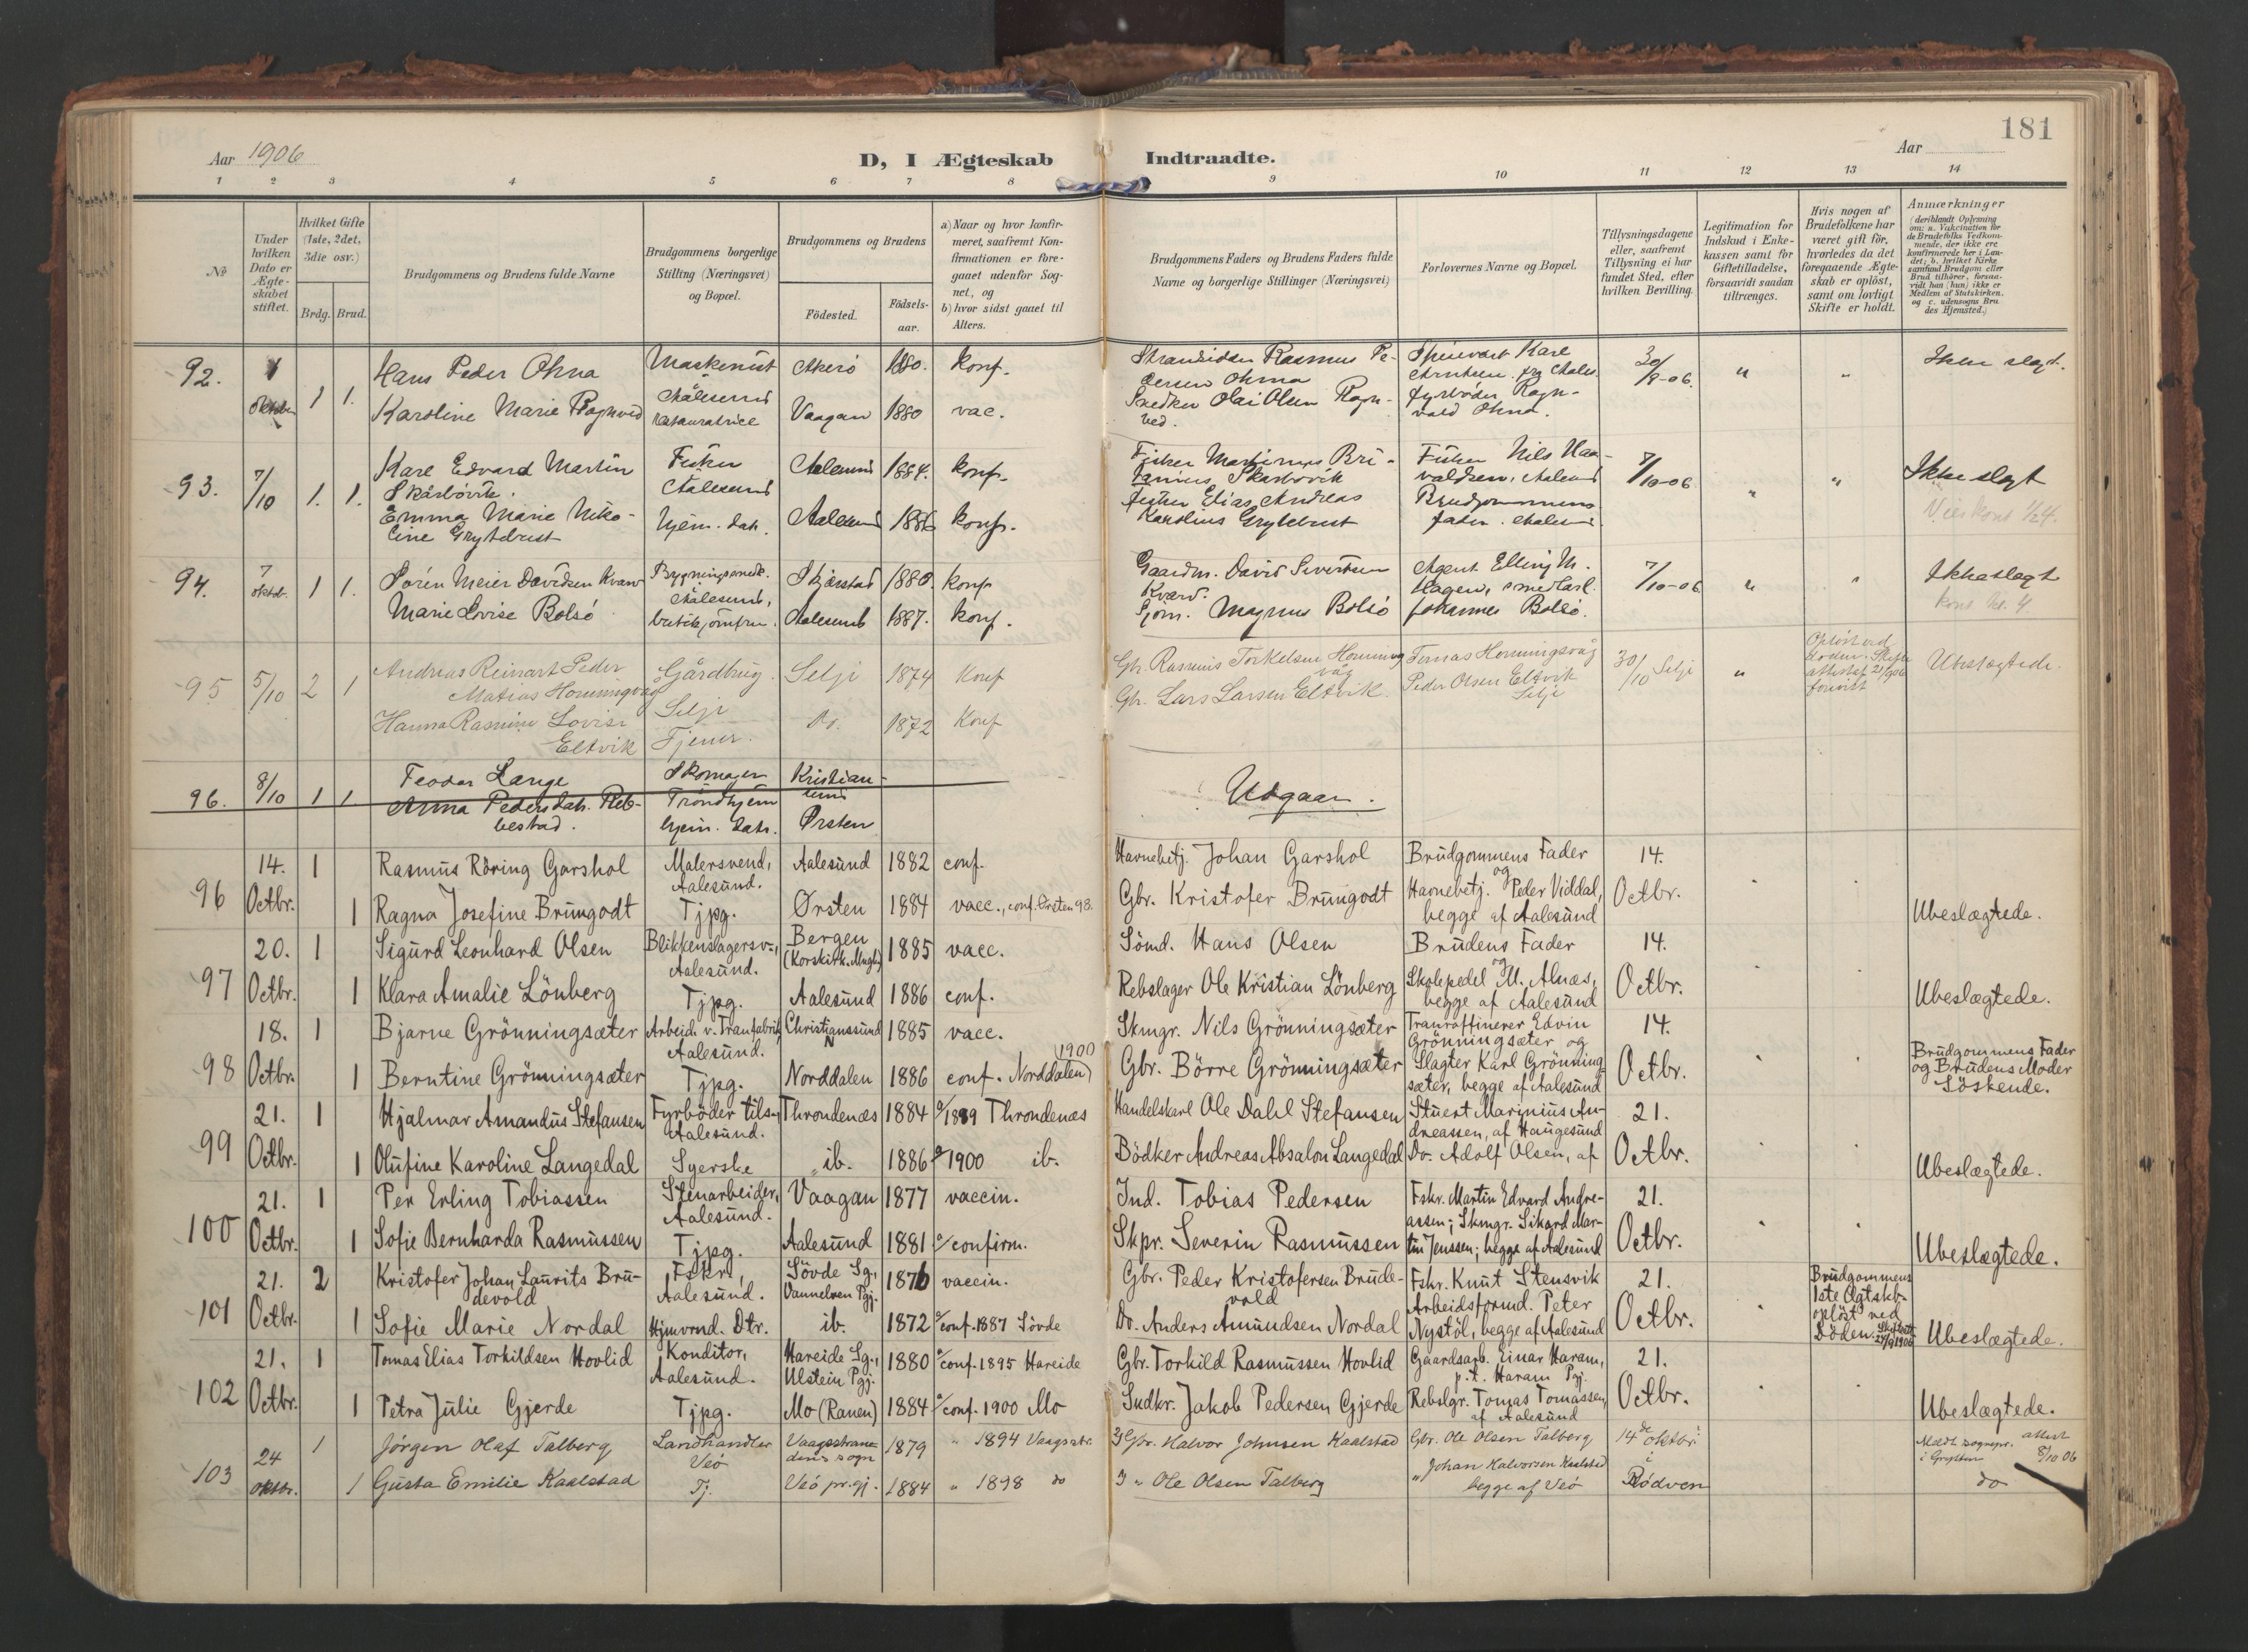 181
Aar 1906
D, I Ægteskab Indtraadte.
Aar
1 2 3 4 5 6 7 8 9 10 11 12 13 14
No
Under hvilken Dato er Ægteskabet stiftet.
Hvilket Gifte (1ste, 2det, 3die osv.)
Brdg. Brud.
Brudgommens og Brudens fulde Navne
Brudgommens borgerlige Stilling (Næringsvei) og Bopæl.
Brudgommens og Brudens
Födested.
Födselsaar.
a) Naar og hvor konfirmeret, saafremt Konfirmationen er foregaaet udenfor Sognet, og
b) hvor sidst gaaet til Alters.
Brudgommens Faders og Brudens Faders fulde Navne og borgerlige Stillinger (Næringsvei)
Forlovernes Navne og Bopæl.
Tillysningsdagene eller, saafremt Tillysning ei har fundet Sted, efter hvilken Bevilling.
Legitimation for Indskud i Enkekassen samt for Giftetilladelse, forsaavidt saadan tiltrænges.
Hvis nogen af Brudefolkene har været gift för, hvorledes da det foregaaende Ægteskab er oplöst, samt om lovligt Skifte er holdt.
Anmærkninger
(deriblandt Oplysning om: a. Vakcination for de Brudefolks Vedkommende, der ikke ere konfirmerede her i Landet; b. hvilket Kirkesamfund Brudgom eller Brud tilhörer, forsaavidt han (hun) ikke er Medlem af Statskirken. og c. udensogns Brudes Hjemsted.)
92. Oktober 1 1. Hans Peder Ohna Maskenist Aalesund Akerö 1880. konf. Rasmus Pedersen Ohna Karl 30/8-06. " " Ikke slegt.
Karoline Marie Vaagan 1880 vac. Snedker Olsen fyrböder Ragnvald Ohna.
93. 7/10 1. 1. Karl Edvard Martin Skarbövik. Fisker Aalesund Aalesund 1884. konf. Fisker Skarbövik Fisker Nils Haavaldsen, Aalesund 7/10-06 " " Ikke slegt
Emma Marie Nikoline Grytebust Hjem. dat. Aalesund 1886 konf. Fisker Elias Andreas Karolius Grytebust Brudgommens fader. Aalesund
94. 7 Oktob. 1 1. Sören Meier Davidsen Kvarv Aalesund, Skjerstad 1880. konf Gaardm. David Sivertsen Kvarv. Agent Elling M. Hagen, smed Carl 7/10-06 " " Ikke slegt
Marie Lovise Bolsö Aalesund 1887. konf. Magnus Bolsö Johannes Bolsö.
95 5/10 2 1 Andreas Reinart Peder Matias Horningvag Gårdbrug. Selje Selje 1874 Konf Gbr. Rasmus Torkelsen Horningvåg Horningsvåg 30/10 Selje " Ubeslægtede.
Hanna Rasmine Lovise Eltvik Tjener. Do. 1872 Konf Gbr. Lars Larsen Eltvik. Peder Olsen Eltvik Selje
96. 8/10 1 1. Feodor Lange Skomager Trondhjem Kristiansund Udgaar.
Anna Pedersdat. Rebbestad. hjem. dat. Ørsten
96 14. Octbr. 1 Rasmus Röring Garshol Malersvend, Aalesund. Aalesund 1882 conf. Havnebetj. Johan Garshol Brudgommens Fader 14. Octbr.
1 Ragna Josefine Brungodt Tjpg. Ørsten 1884 vacc., conf. Ørsten 98. Gbr. Kristofer Brungodt og Havnebetj. Peder Viddal, begge af Aalesund Ubeslægtede.
97 20. Octbr. 1 Sigurd Leonhard Olsen Blikkenslagersv., Aalesund. Bergen (Korskirk. Mngh.) 1885 vacc. Sömd. Hans Olsen Brudens Fader 14. Octbr.
1 Klara Amalie Lönberg Tjpg. Aalesund 1886 conf. Rebslager Ole Kristian Lönberg og Skolepedel M. Alnæs, begge af Aalesund Ubeslægtede.
98 18. Octbr. 1 Bjarne Grönningsæter Arbeid. v. Tranfabrik, Aalesund. Christianssund N 1885 vacc. Skmgr. Nils Grönningsæter Tranraffinerer Edvin Grönningsæter og 14. Octbr.
1 Berntine Grönningsæter Tjpg. Norddalen 1886 conf. Norddalen 1900 Gbr. Börre Grönningsæter Slagter Karl Grönningsæter, begge af Aalesund Brudgommens Fader og Brudens Moder Söskende.
99 21. Octbr. 1 Hjalmar Amandus Stefansen Fyrböder tils., Aalesund. Throndenæs 1884 1899 Throndenæs Handelskarl Ole Dahl Stefansen Stuert Marinius Andreassen, af Haugesund 21. Octbr.
1 Olufine Karoline Langedal Syerske ib. 1886 1900 ib. Bödker Andreas Absalon Langedal Do. Adolf Olsen, af Ubeslægtede.
100 21. Octbr. 1 Per Erling Tobiassen Stenarbeider, Aalesund. Vaagan 1877 vaccin. Ind. Tobias Pedersen Fskr. Martin Edvard Andreassen; Skmgr. Sikard Martin Jenssen; begge af Aalesund 21. Octbr.
1 Sofie Bernharda Rasmussen Tjpg. Aalesund 1881 confirm. Skpr. Severin Rasmussen Ubeslægtede.
101 21. Octbr. 2 Kristofer Johan Laurits Brudevold Fskr., Aalesund. Sövde Sg., Vannelven Pgj. 1876 vaccin. Gbr. Peder Kristofersen Brudevold Fskr. Knut Stensvik 21. Octbr. Brudgommens 1ste Ægtskb. oplöst ved Döden.
1 Sofie Marie Nordal Hjmvrnd. Dtr. ib. 1872 conf. 1887 Sövde Do. Anders Amundsen Nordal Arbeidsformd. Peter Nystöl, begge af Aalesund Ubeslægtede.
102 21. Octbr. 1 Tomas Elias Torkildsen Hovlid Konditor, Aalesund. Hareide Sg., Ulstein Pgj. 1880 conf. 1895 Hareide Gbr. Torkild Rasmussen Hovlid Gaardsarb. Einar Haram, p.t. Haram Pgj. 21. Octbr.
1 Petra Julie Gjerde Tjpg. Mo (Ranen) 1884 conf. 1900 Mo Sudkr. Jakob Pedersen Gjerde Rebslgr. Tomas Tomassen, af Aalesund Ubeslægtede.
103 24 Oktbr. 1 Jörgen Olaf Talberg Landhandler Veö sogn 1879 " 1894 Vaagstr. Gbr. Halvor Johnsen Kaalstad Gbr. Ole Olsen Talberg 14de oktbr. i Rödven attest 8/10 06
1 Gusta Emilie Kaalstad Tj. Veö pr.gj. 1884 " 1898 do " Ole Olsen Talberg " Johan Halvorsen Kaalstad begge af Veö do